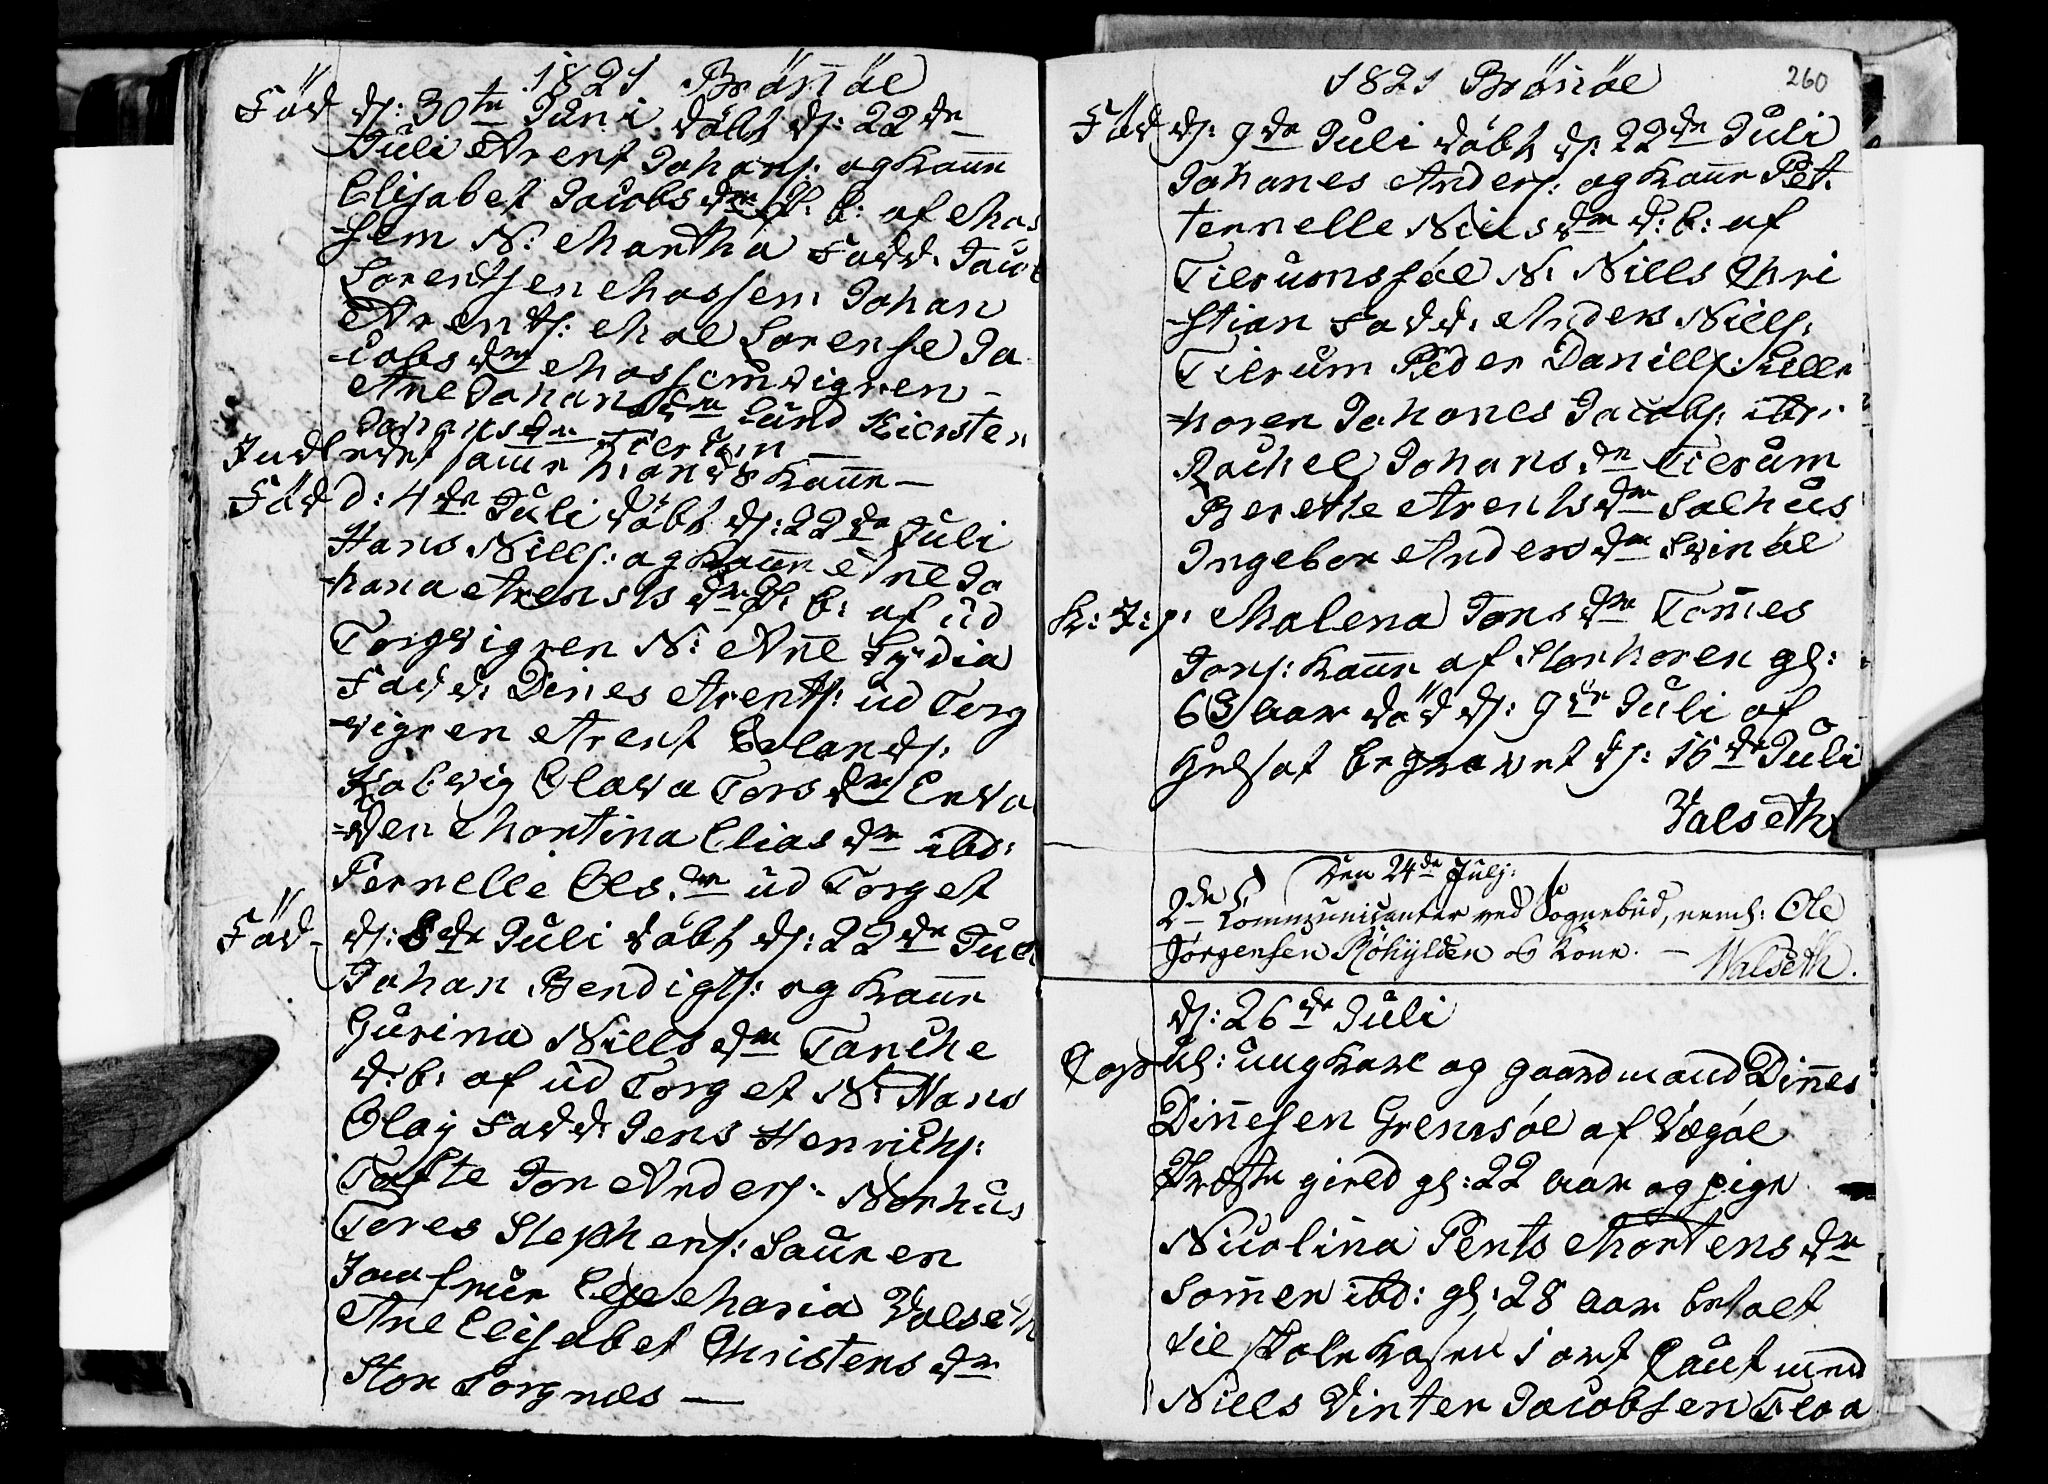 1821 Brönöe
Föd d: 30te Juni döbt d: 22de
Juli Arent Johans: og Kaane
Elisabet Jacobsdr d: b: af Mos
sem N: Martha Fadd: Jacob
Lorentsen Mossem Johan
Arents: Moe Lorense Ja
cobsdr Mossemvigren
Ane Johansdr Lund Kiersten
Johansdr Tilrum
Indledet samme Mands Kaane
Föd d: 4de Juli döbt d: 22de Juli
Hans Nills: og Kaane Ane Jo
hana Arentsdr d: b: af üd
Torgvigren N: Ane Lydia
Fadd: Dines Arents: üd Torg
vigren Arent Erlands:
Kalvvig Olava Torsdr Enva
den Martina Eliasdr ibd:
Pernelle Olsdr üd Torget
Föd d: 8de Juli döbt d: 22de Juli
Johan Bendigts: og Kaane
Gurina Nillsdr Tanche
d: b: af üd Torget N: Hans
Olay Fadd: Jens Henrichs:
Tofte Jon Anders: Norhus
Tores Stephens: Sauren
Jomfrue Ege Maria Valseth
Ane Elisabet Christensdr
Stor Torgnæs
1821 Brönöe 260
Föd d: 9de Juli döbt d: 22de Juli
Johanes Anders: og Kaane Pet
ternelle Nilsdr d: b: af
Tilrumsföe N: Nills Chri
stian Fadd: Anders Nills:
Tilrum Peder Danills:
horen Johanes Jacobs: ibd:
Rachel Johansdr Tilrum
Berette Arentsdr Salhus
Ingebor Andersdr Svinöe
K: J: p: Malena Jonsdr Tomes
Jons: Kaane af Storhoren gl:
63 aar död d: 9de Juli af
begravet d: 15de Juli
Valseth
Den 24de Julj:
2de Communicanter ved Sognebud, neml: Ole
Jörgensen Röhylden og Kone. – Walseth.
d: 26de Juli
Cop ungKarl og gaardmand Dines
Dinesen Grensöe af Vegöe
Præste gield gl: 22 aar og pige
Nicolina Pents Mortensdr
Sommer ibd: gl: 28 aar betalt
til skole Kassen 1 ort Caut mend
Nills Vinter Jacobsen Floa